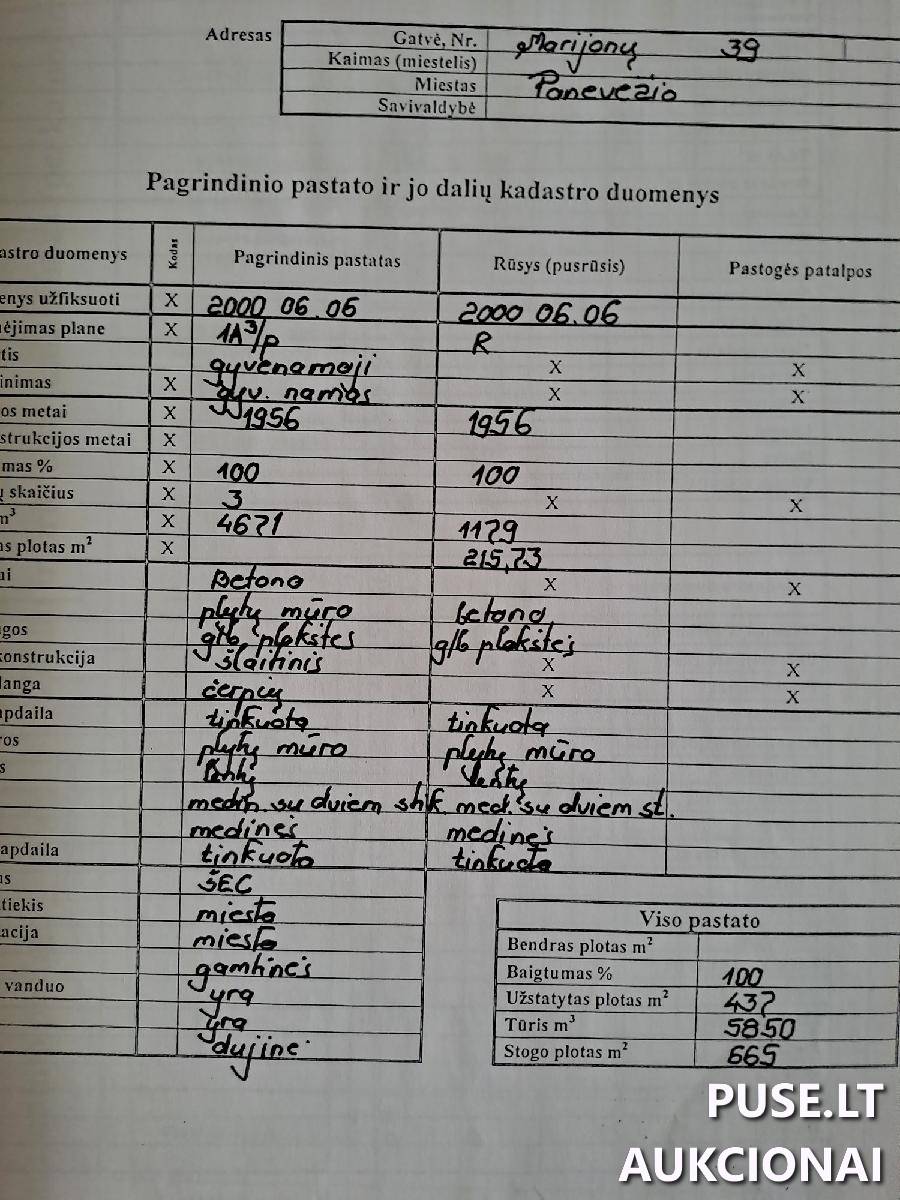 Adresas
Gatvė, Nr. Marijonų 39
Kaimas (miestelis)
Miestas Panevėžio
Savivaldybė
Pagrindinio pastato ir jo dalių kadastro duomenys
astro duomenys Kodas Pagrindinis pastatas Rūsys (pusrūsis) Pastogės patalpos
enys užfiksuoti X 2000 06.06 2000 06.06
ėjimas plane X 1A³/p R
tis gyvenamoji X X
inimas X gyv. namas X X
os metai X 1956 1956
strukcijos metai X
mas % X 100 100
ų skaičius X 3 X X
m³ X 4671 1179
as plotas m² X 215,73
ai Betono X X
plytų mūro betono
gos g/b plokštės g/b plokštės
konstrukcija šlaitinis X X
langa čerpių X X
apdaila tinkuota tinkuota
ros plytų mūro plytų mūro
s lentų lentų
medin. su dviem stik. med. su dviem st.
medinės medinės
apdaila tinkuota tinkuota
us ŠEC
tiekis miesto
acija miesto
gamtinės
vanduo yra
yra
dujinė
Viso pastato
Bendras plotas m²
Baigtumas % 100
Užstatytas plotas m² 437
Tūris m³ 5850
Stogo plotas m² 665
PUSE.LT
AUKCIONAI